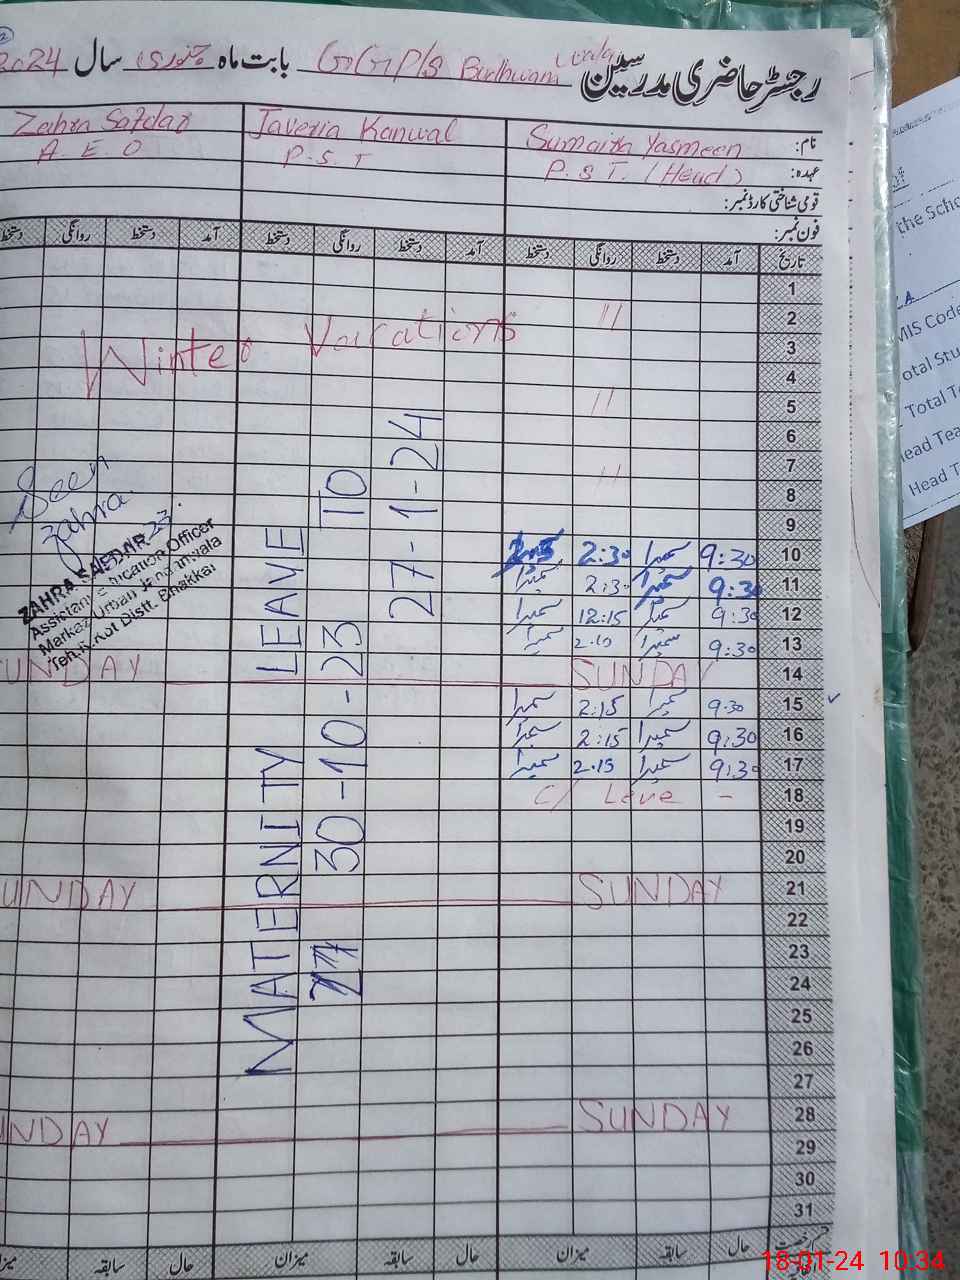 رجسٹر حاضری مدرسین GGP/S Budhwani wala بابت ماہ جنوری سال 2024
نام: Sumaira Yasmeen Javeria Kanwal Zahra Safdar
عہدہ: P.S.T. (Head) P.S.T A.E.O
قومی شناختی کارڈ نمبر:
فون نمبر:
تاریخ آمد دستخط روانگی دستخط آمد دستخط روانگی دستخط آمد دستخط روانگی
1
2 "
3 Winter Vacations
4
5 "
6
7
8 "
9
10 9:30 سمیرا 2:30
11 9:30 سمیرا 2:30 سمیرا
12 9:30 سمیرا 12:15 سمیرا
13 9:30 سمیرا 2:10 سمیرا
14 SUNDAY SUNDAY
15 9:30 سمیرا 2:15 سمیرا
16 9:30 سمیرا 2:15 سمیرا
17 9:30 سمیرا 2:15 سمیرا
18 C/ Leve -
19
20
21 SUNDAY SUNDAY
22
23
24
25
26
27
28 SUNDAY SUNDAY
29
30
31
MATERNITY LEAVE
30-10-23 TO
27-1-24
Seen
Zahra
ZAHRA SAFDAR
Assistant Education Officer
Markaz Urban Jandanwala
Distt. Bhakkar
حال سابقہ میزان حال سابقہ میزان حال سابقہ
رخصت
18-01-24 10:34
the Scho
MIS Code
otal Stu
Total T
ead Tea
Head T